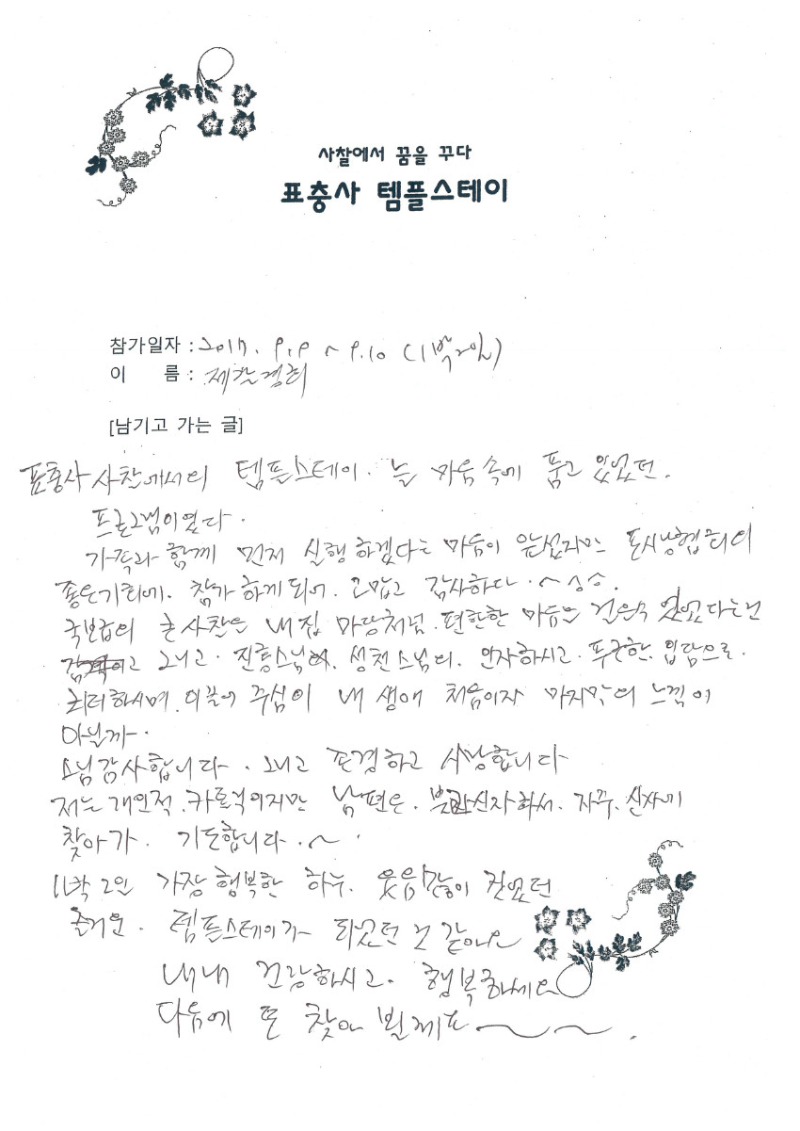 사찰에서 꿈을 꾸다
표충사 템플스테이
참가일자 : 2017. 9.9 ~ 9.10 (1박2일)
이 름 : 제갈경희
[남기고 가는 글]
표충사 사찰에서의 템플스테이. 늘 마음속에 품고 있었던.
프로그램이였다.
가족과 함께 먼저 실행하겠다는 마음이 앞섰지만
좋은기회에. 참가하게되어. 고맙고 감사하다. ~
국보급의 큰사찰은 내집 마당처럼. 편한한 마음으
그리고. 진홍스님에. 성천스님의. 인자하시고. 푸근한. 입담으로.
이끌어 주심이 내 생애 처음이자 마지막의 느낌이
아닐까.
스님감사합니다. 그리고 존경하고 사랑합니다
저는 개인적. 카토릭이지만 남편은. 자꾸. 산사에
찾아가. 기도합니다. ~
1박 2일 가장 행복한 하루. 웃음 많이 컸었던
즐거운. 템플스테이가 되었던 것 같아요
내내 건강하시고. 행복하세요
다음에 또 찾아 뵐께요 ~ ~ .